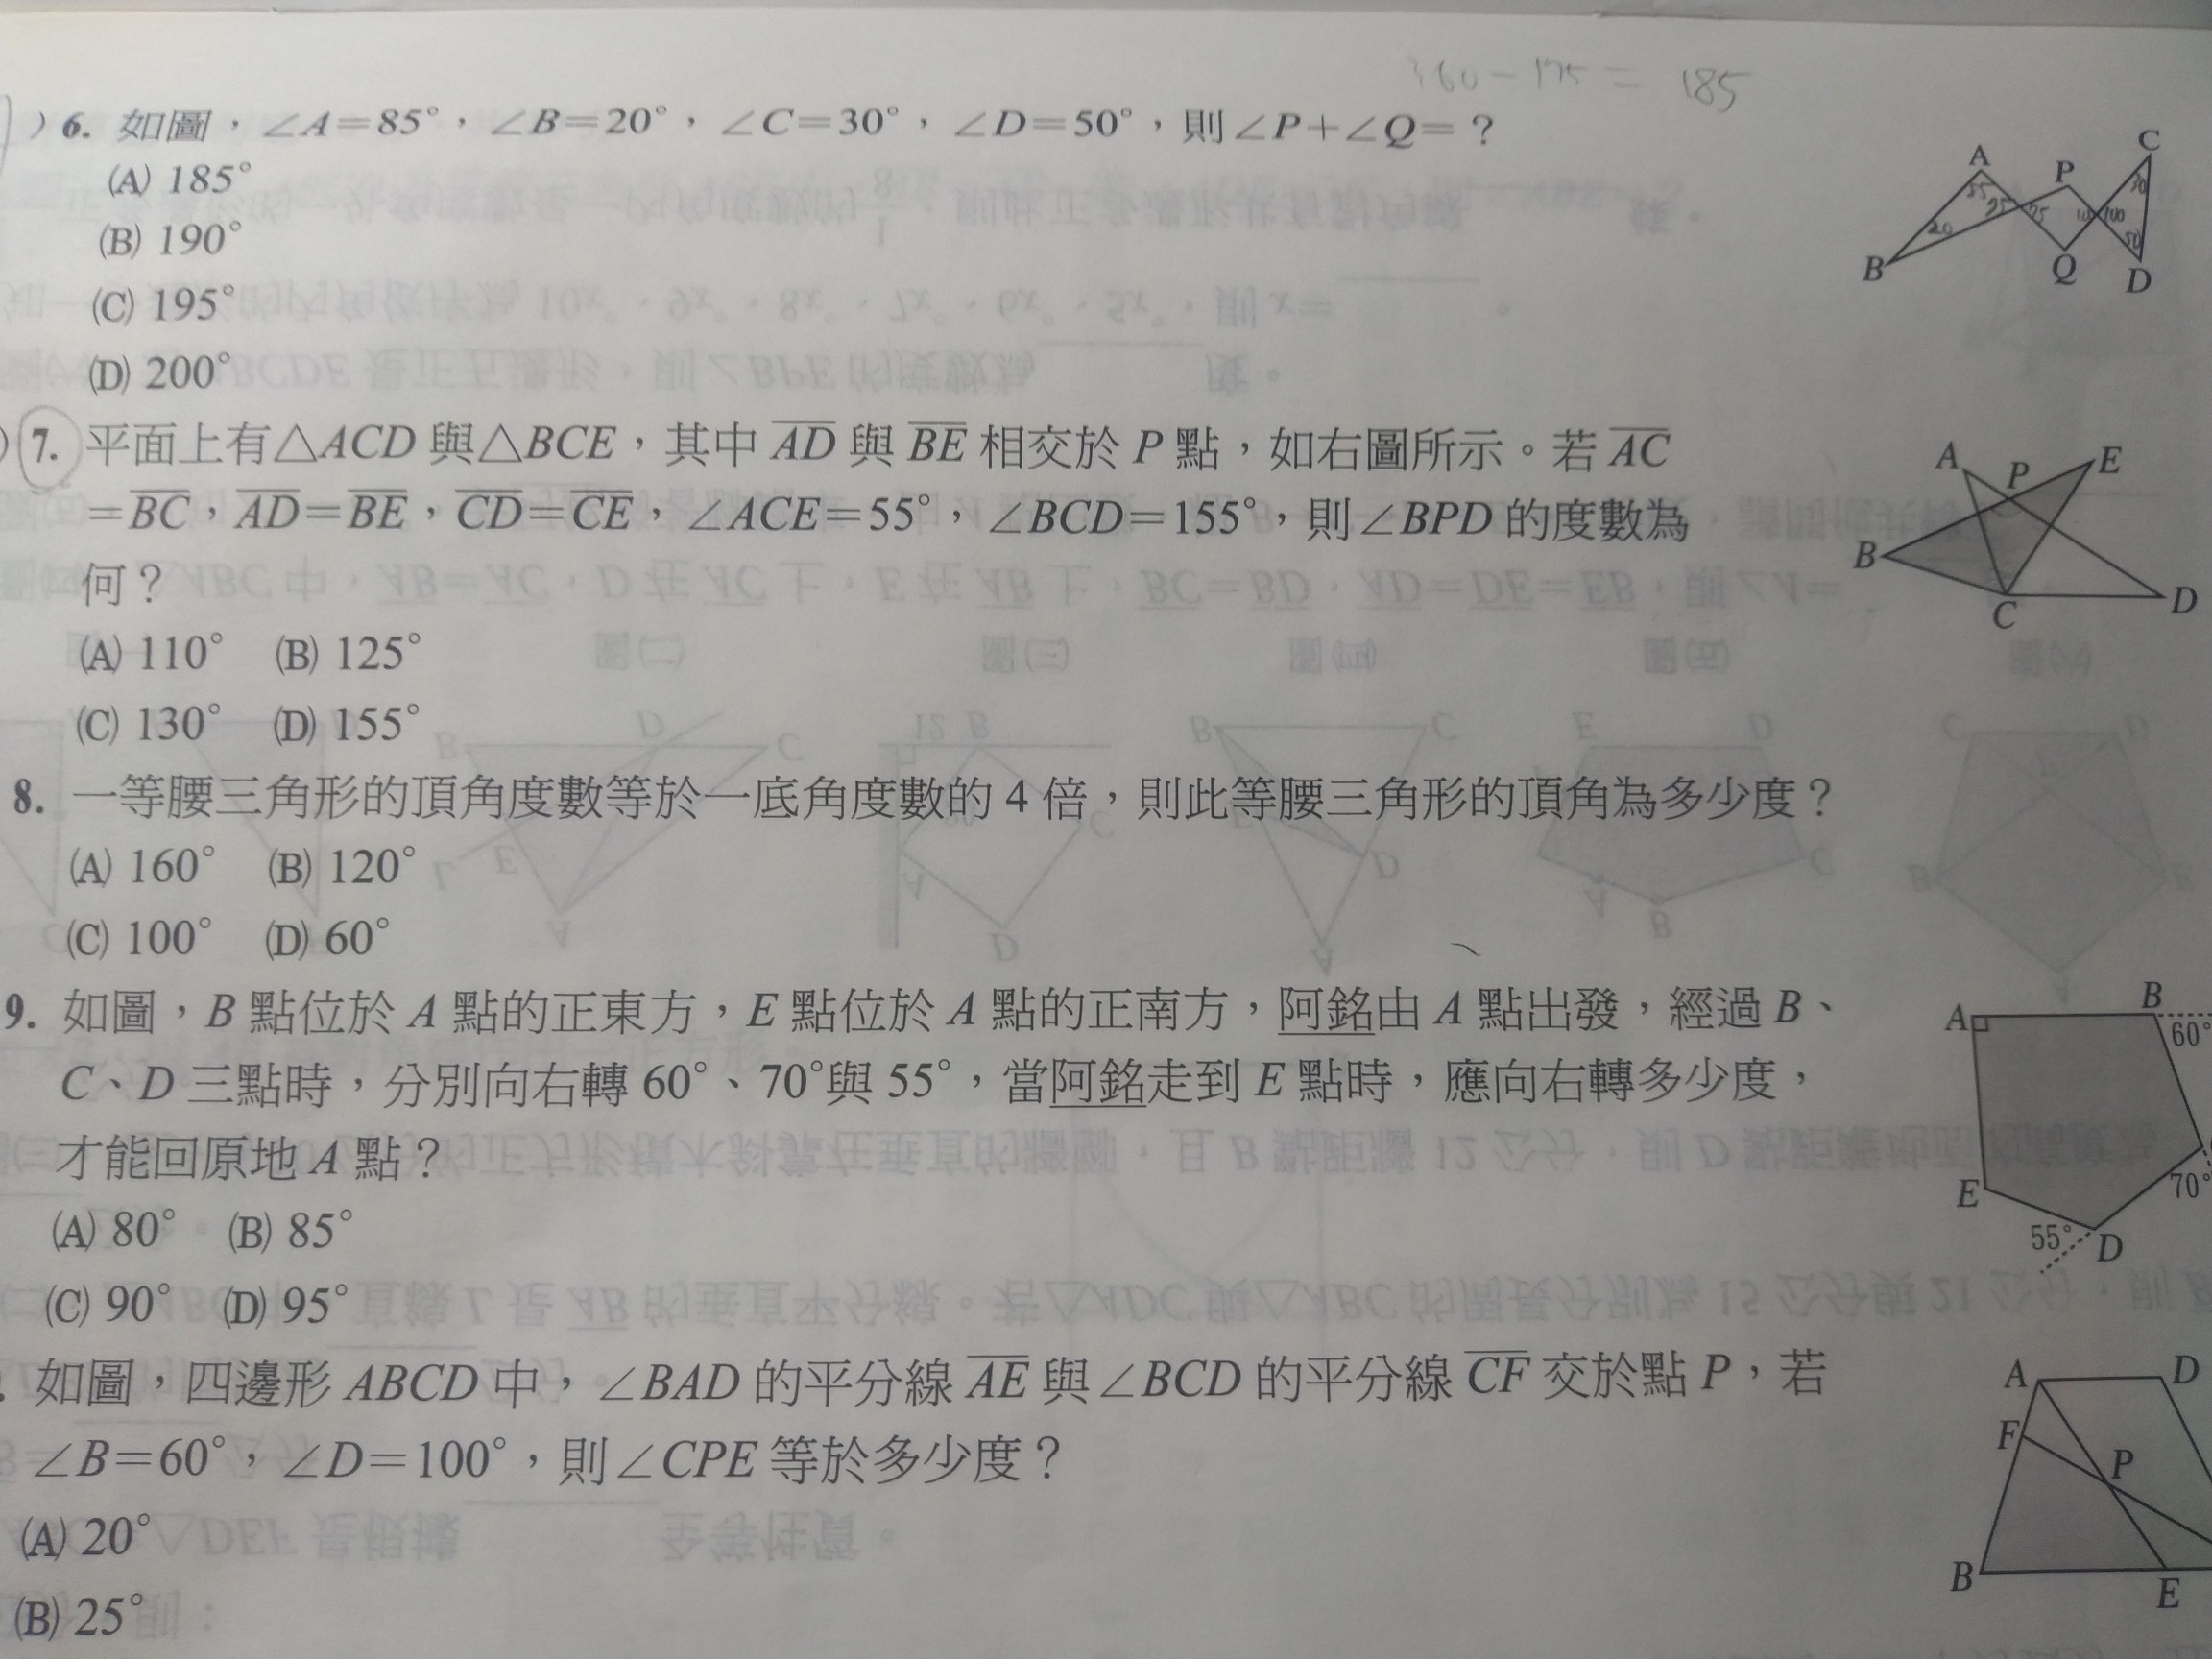 360-175= 185
)6. 如圖，∠A=85°，∠B=20°，∠C=30°，∠D=50°，則∠P+∠Q=？
(A) 185°
(B) 190°
(C) 195°
(D) 200°
A P C
B Q D
)7. 平面上有△ACD 與△BCE，其中 AD 與 BE 相交於 P 點，如右圖所示。若 AC
=BC，AD=BE，CD=CE，∠ACE=55°，∠BCD=155°，則∠BPD 的度數為
何？
(A) 110° (B) 125°
(C) 130° (D) 155°
A P E
B C D
8. 一等腰三角形的頂角度數等於一底角度數的 4 倍，則此等腰三角形的頂角為多少度？
(A) 160° (B) 120°
(C) 100° (D) 60°
9. 如圖，B 點位於 A 點的正東方，E 點位於 A 點的正南方，阿銘由 A 點出發，經過 B、
C、D 三點時，分別向右轉 60°、70°與 55°，當阿銘走到 E 點時，應向右轉多少度，
才能回原地 A 點？
(A) 80° (B) 85°
(C) 90° (D) 95°
A B
60°
E 70°
55° D
如圖，四邊形 ABCD 中，∠BAD 的平分線 AE 與∠BCD 的平分線 CF 交於點 P，若
∠B=60°，∠D=100°，則∠CPE 等於多少度？
(A) 20°
(B) 25°
A D
F P
B E